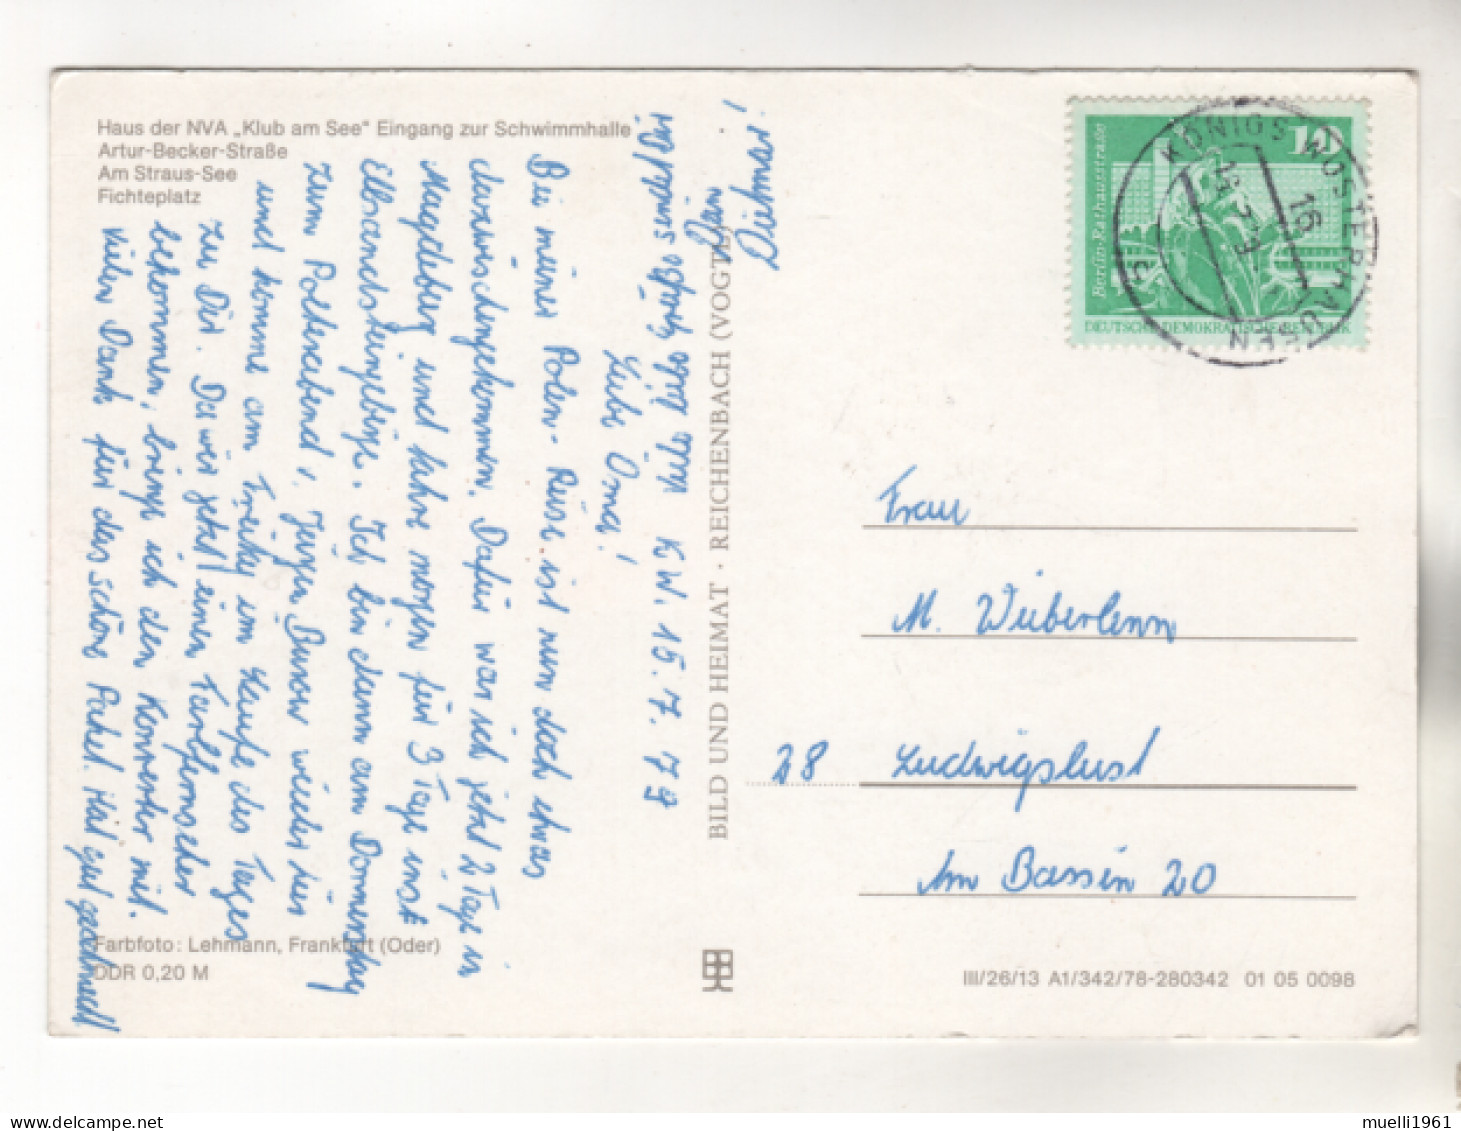 Haus der NVA „Klub am See“ Eingang zur Schwimmhalle
Artur-Becker-Straße
Am Straus-See
Fichteplatz
K W. 15. 7. 79
Liebe Oma!
Bei meiner Polen-Reise ist nun doch etwas
dazwischengekommen. Dafür war ich jetzt 2 Tage in
Magdeburg und fahre morgen für 3 Tage ins
Elbsandsteingebirge. Ich bin dann am Donnerstag
zum Polterabend, Jürgen Bunow wieder hier
und komme am Freitag im Laufe des Tages
zu Dir. Da wir jetzt einen Farbfernseher
bekommen, bringe ich den Konverter mit.
Vielen Dank für das schöne Paket. Hat gut geschmeckt
Viele liebe Grüße sendet Dir
Dein
Dietmar!
BILD UND HEIMAT · REICHENBACH (VOGTL)
Farbfoto: Lehmann, Frankfurt (Oder)
DDR 0,20 M
10
Berlin-Rathausstraße
DEUTSCHE DEMOKRATISCHE REPUBLIK
KÖNIGS WUSTERHAUSEN
16
Frau
M. Wieberlenn
28 Ludwigslust
Am Bassin 20
III/26/13 A1/342/78-280342 01 05 0098
muelli1961